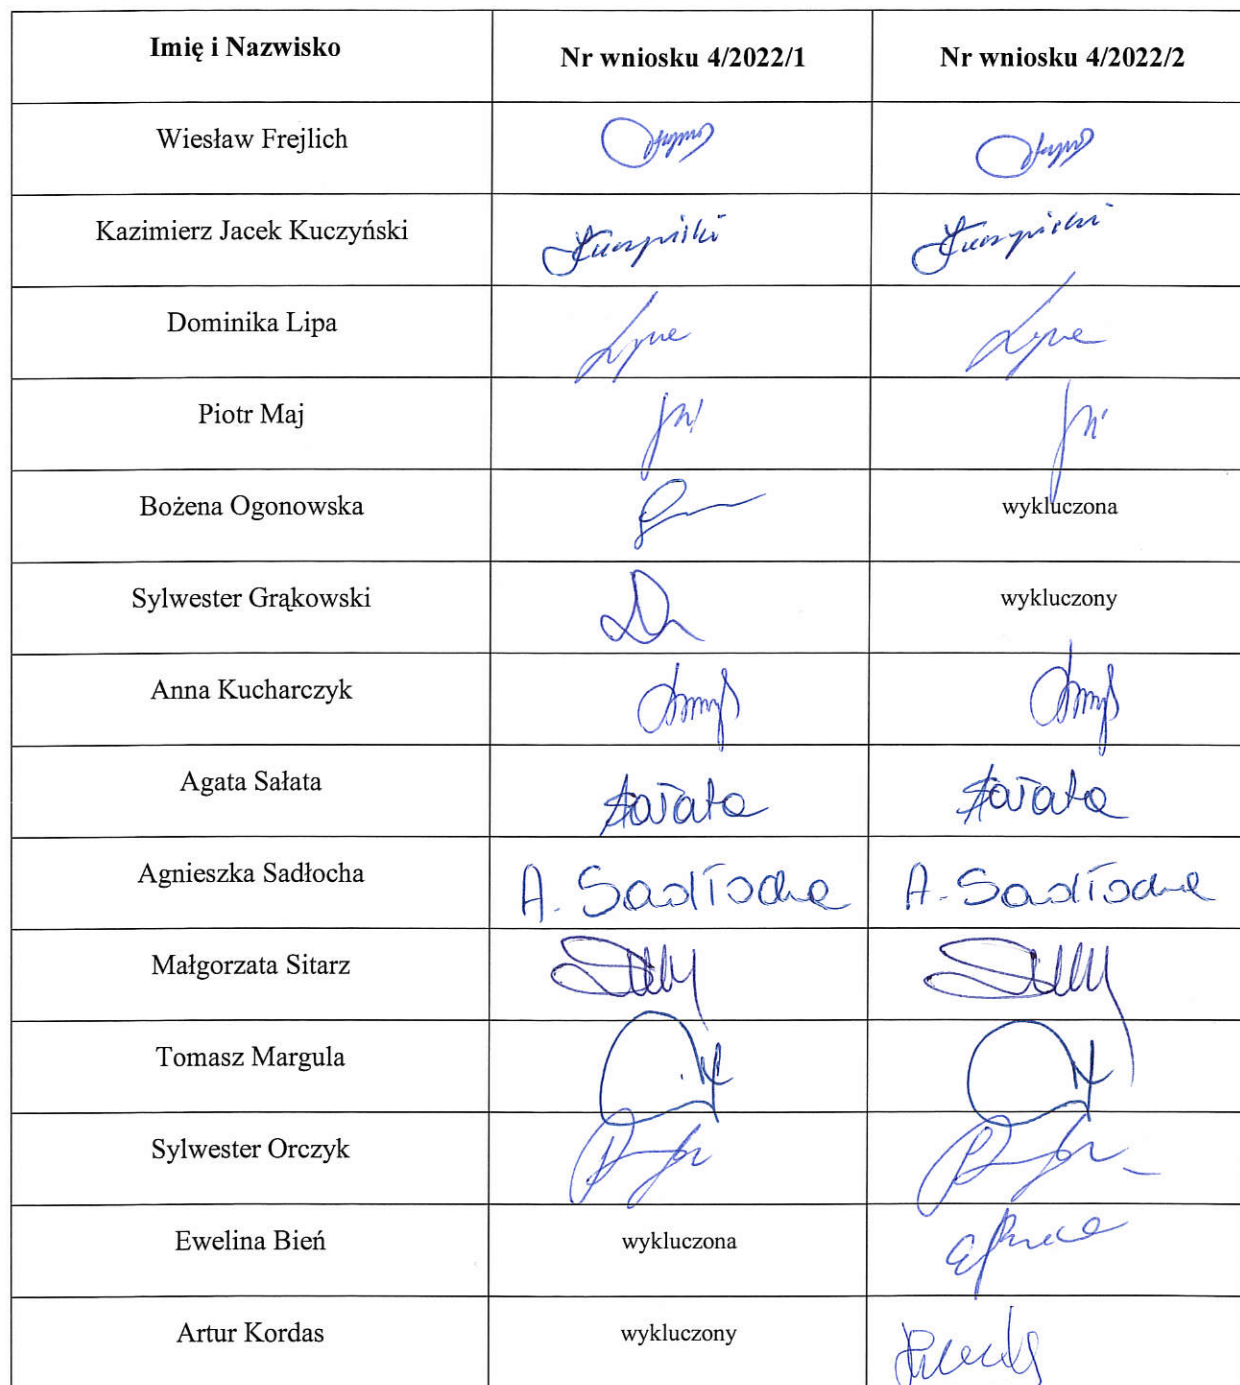 Imię i Nazwisko Nr wniosku 4/2022/1 Nr wniosku 4/2022/2
Wiesław Frejlich
Kazimierz Jacek Kuczyński Kuczyński Kuczyński
Dominika Lipa Lipa Lipa
Piotr Maj
Bożena Ogonowska wykluczona
Sylwester Grąkowski wykluczony
Anna Kucharczyk
Agata Sałata Sałata Sałata
Agnieszka Sadłocha A. Sadłocha A. Sadłocha
Małgorzata Sitarz
Tomasz Margula
Sylwester Orczyk
Ewelina Bień wykluczona
Artur Kordas wykluczony